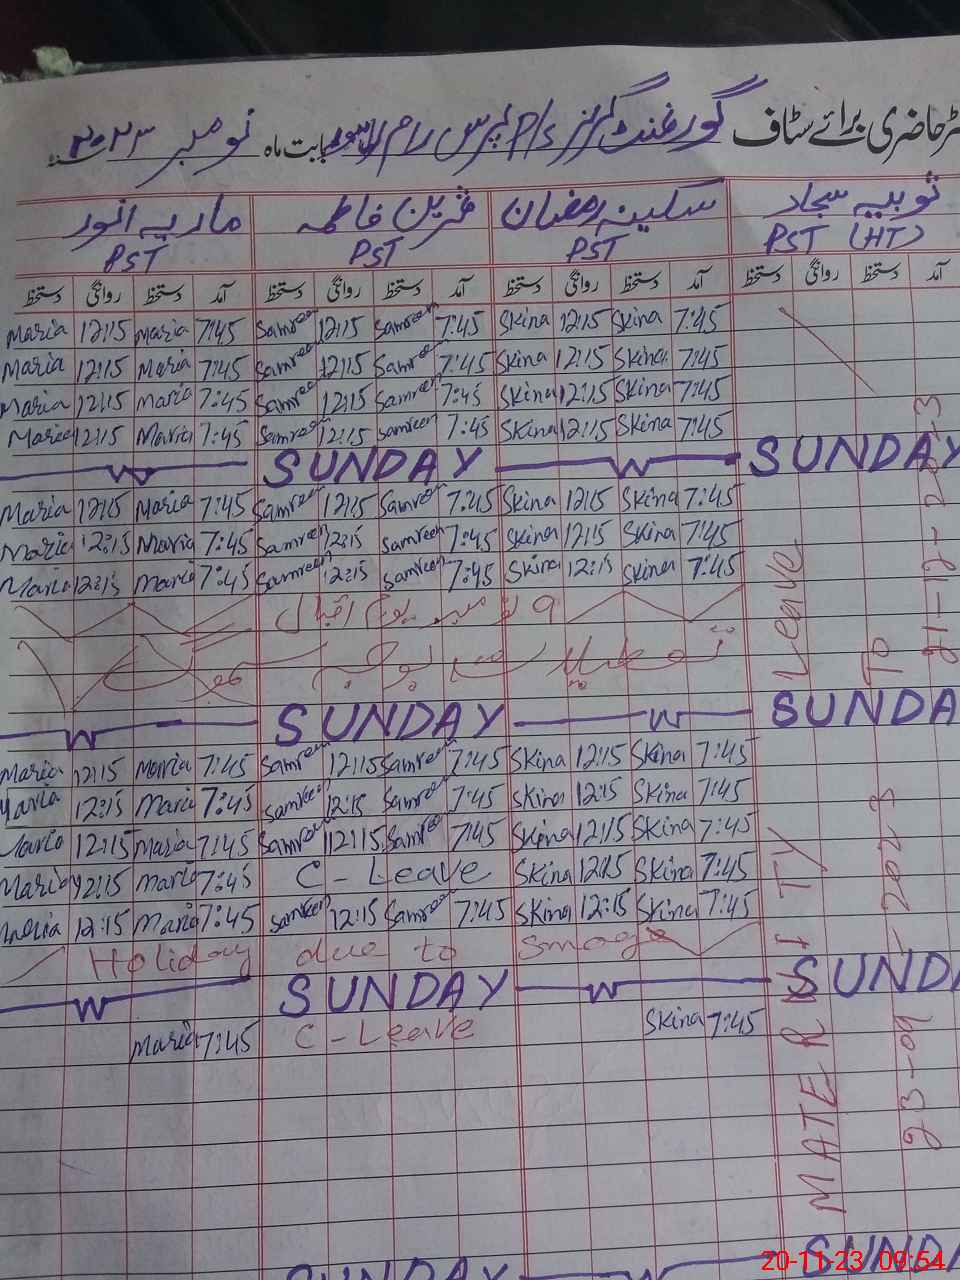 حاضری برائے سٹاف گورنمنٹ گرلز P/S پرس رام لاہور بابت ماہ نومبر ۲۰۲۳
ثوبیہ سجاد سکینہ رمضان ثمرین فاطمہ ماریہ انور
PST (HT) PST PST PST
آمد دستخط روانگی دستخط آمد دستخط روانگی دستخط آمد دستخط روانگی دستخط آمد دستخط روانگی دستخط
Maria 12:15 Maria 7:45 Samreen 12:15 Samreen 7:45 Skina 12:15 Skina 7:45
Maria 12:15 Maria 7:45 Samreen 12:15 Samreen 7:45 Skina 12:15 Skina 7:45
Maria 12:15 Maria 7:45 Samreen 12:15 Samreen 7:45 Skina 12:15 Skina 7:45
Maria 12:15 Maria 7:45 Samreen 12:15 Samreen 7:45 Skina 12:15 Skina 7:45
SUNDAY SUNDAY
Maria 12:15 Maria 7:45 Samreen 12:15 Samreen 7:45 Skina 12:15 Skina 7:45
Maria 12:15 Maria 7:45 Samreen 12:15 Samreen 7:45 Skina 12:15 Skina 7:45
Maria 12:15 Maria 7:45 Samreen 12:15 Samreen 7:45 Skina 12:15 Skina 7:45
۹ نومبر یوم اقبال
تعطیلات بوجہ سموگ
SUNDAY SUNDA
Maria 12:15 Maria 7:45 Samreen 12:15 Samreen 7:45 Skina 12:15 Skina 7:45
Maria 12:15 Maria 7:45 Samreen 12:15 Samreen 7:45 Skina 12:15 Skina 7:45
Maria 12:15 Maria 7:45 Samreen 12:15 Samreen 7:45 Skina 12:15 Skina 7:45
Maria 12:15 Maria 7:45 C-Leave Skina 12:15 Skina 7:45
Maria 12:15 Maria 7:45 Samreen 12:15 Samreen 7:45 Skina 12:15 Skina 7:45
Holiday due to Smoge
SUNDAY SUNDA
Maria 7:45 C-Leave Skina 7:45
MATERNITY Leave
23-09-2023 To 21-12-2023
SUNDAY SUNDA
20-11-23 09:54